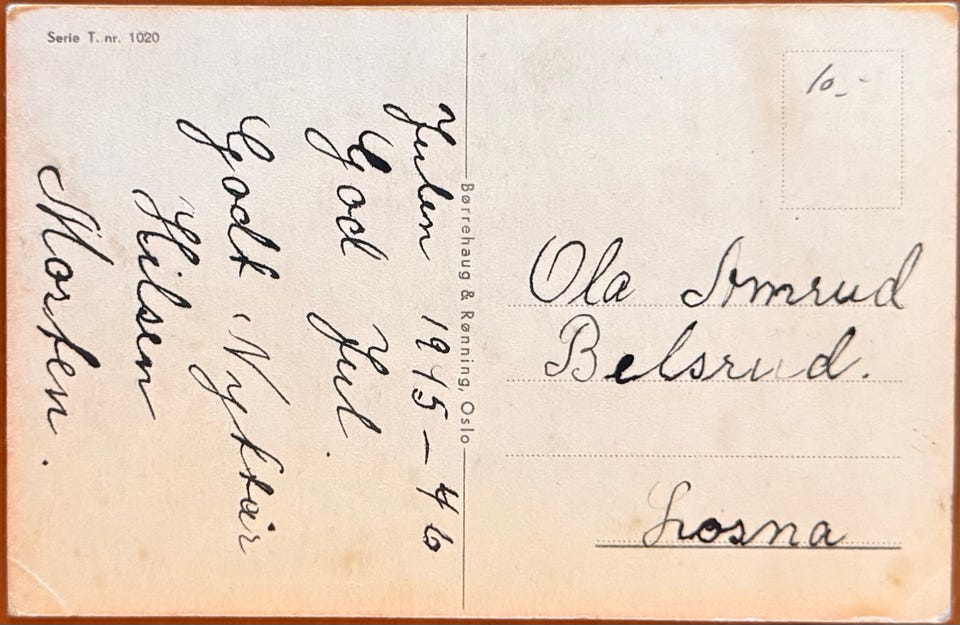 Serie T. nr. 1020
Julen 1945-46
God Jul.
Godt Nyttår
Hilsen
Morten.
Børrehaug & Rønning, Oslo
10.-
Ola Amrud
Belsrud.
Losna